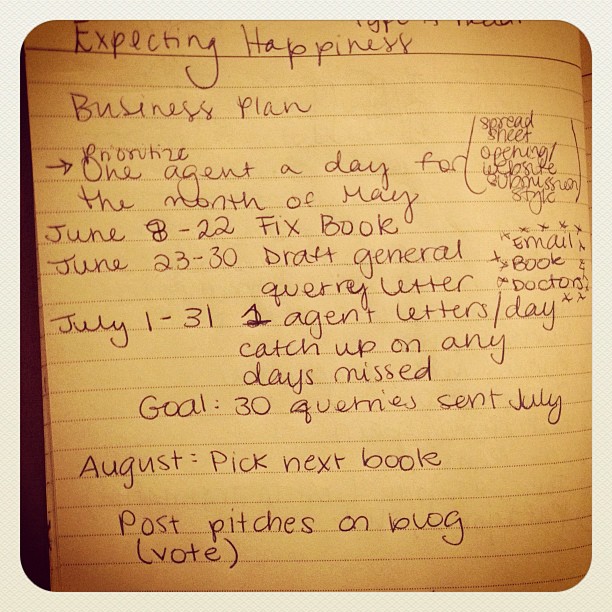 Expecting Happiness
Business Plan
Prioritize
→ One agent a day for
the month of May
(spread
sheet
opening/
website
submission
style)
June 8-22 Fix Book
June 23-30 Draft general
querrey letter
Email
Book
Doctors
July 1-31 1 agent letters/day
catch up on any
days missed
Goal: 30 querries sent July
August: Pick next book
Post pitches on blog
(vote)